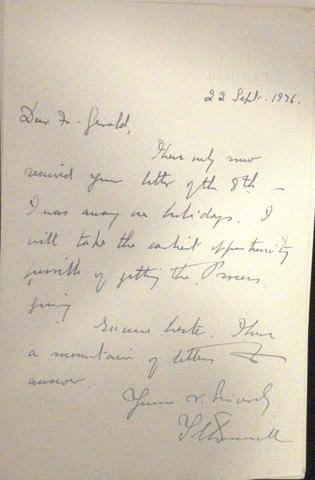 22 Sept. 1976.
Dear Fr. Gerald,
I have only now
received your letter of the 8th —
I was away on holidays. I
will take the earliest opportunity
possible of getting the Process
going.
Excuse haste. I have
a mountain of letters to
answer.
Yours v. sincerely